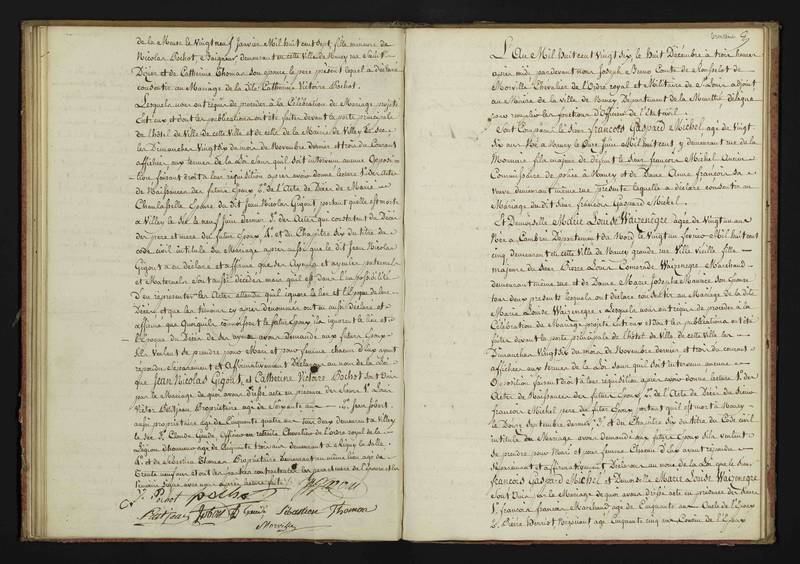 de la Meuse le Vingt neuf Janvier Mil huit cent Sept, fille mineure de
Nicolas Pochot, Baigneur, demeurant en cette Ville de Nancy rue Saint
Dizier et de Catherine Thomas son épouse, le père présent lequel a déclaré
consentir au Mariage de sa fille Catherine Victoire Pochot.
Lesquels nous ont requis de procéder à la Célébration du Mariage projeté
entr'eux et dont les publications ont été faites devant la porte principale
de l'hôtel de Ville de cette Ville et de celle de la Mairie de Villey le Sec
les Dimanches Vingt Six du mois de Novembre dernier et trois du Courant
affichées aux termes de la Loi sans qu'il soit intervenu aucune Opposi=
tion faisant droit à leur réquisition après avoir donné lecture 1° des actes
de Naissance des futurs Epoux 2° de l'Acte de Décès de Marie
Epouse du dit Jean Nicolas Gigout portant qu'elle est morte
à Villey le Sec le neuf Juin dernier 3° des Actes qui constatent le Décès
des père et mère du futur Epoux 4° et du Chapitre Six du titre du
code civil intitulé du Mariage après aussi que le dit Jean Nicolas
Gigout a eu déclaré et affirmé que ses Ayeuls et ayeules paternels
et Maternels sont aussi décédés mais qu'il est dans l'impossibilité
d'en représenter les Actes attendu qu'il ignore le lieu et l'époque de leurs
Décès et que les témoins ci après dénommés ont eu aussi déclaré et
affirmé que quoiqu'ils connoissent le futur Epoux ils ignorent le lieu et
l'Epoque du Décès de ses ayeux avons demandé aux futurs Epoux
s'ils veulent se prendre pour Mari et pour femme chacun d'eux ayant
répondu Séparément et Affirmativement Déclarons au nom de la Loi
que Jean Nicolas Gigout, et Catherine Victoire Pochot sont Unis
par le Mariage de quoi avons dressé acte en présence des Sieurs 1° Louis
Victor Petitjean Propriétaire agé de Soixante ans 2° Jean
aussi propriétaire agé de Cinquante quatre ans tous deux demeurant à Villey
le Sec 3° Claude Officier en retraite Chevalier de l'ordre royal de la
Légion d'honneur agé de Cinquante trois ans demeurant à
4° et de Sébastien Thomas Propriétaire demeurant au même lieu agé de
Trente neuf ans et ont les parties contractantes les père et mère de l'Epouse et les
témoins signé avec nous après lecture faite
Pochot
Petitjean Sébastien Thomas
Morville
L'An Mil huit cent Vingt Six, le huit Décembre à trois heures
après midi pardevant nous Joseph Comte de
Morville Chevalier de l'Ordre royal et Militaire de St Louis adjoint
au Maire de la Ville de Nancy Département de la Meurthe délégué
pour remplir les fonctions d'Officier de l'Etat civil
Sont Comparus le Sieur François Gaspard Michel, agé de Vingt
six ans Né à Nancy le Mil huit cent, y demeurant rue de la
Monnaie fils majeur de défunt le Sieur François Michel Ancien
Commissaire de police à Nancy et de Dame Anne François sa
veuve demeurant même rue présente laquelle a déclaré consentir au
Mariage du dit Sieur François Gaspard Michel.
Et Demoiselle Marie Louise Warzenegre agée de Vingt un ans
Née à Cambrai Département du Nord le Vingt un février Mil huit cent
cinq demeurant en cette Ville de Nancy grande rue Ville Vieille fille
majeure du Sieur Pierre Louis Warzenegre Marchand
demeurant même rue et de Dame Marie Josephe Maurice son épouse
tous deux présents lesquels ont déclaré consentir au Mariage de la dite
Marie Louise Warzenegre, Lesquels nous ont requis de procéder à la
Célébration du Mariage projeté entr'eux et dont les publications ont été
faites devant la porte principale de l'hôtel de Ville de cette Ville les
Dimanches Vingt Six du mois de Novembre dernier et trois du courant
affichées aux termes de la Loi sans qu'il soit intervenu aucune
Opposition faisant droit à leur réquisition après avoir donné lecture 1° des
Actes de Naissance des futurs Epoux 2° de l'Acte de Décès du Sieur
François Michel père du futur Epoux portant qu'il est mort à Nancy
le Douze Septembre dernier 3° et du Chapitre Six du titre du Code civil
intitulé du Mariage avons demandé aux futurs Epoux s'ils veulent
se prendre pour Mari et pour femme chacun d'eux ayant répondu
Séparément et affirmativement Déclarons au nom de la Loi que le Sieur
François Gaspard Michel et Demoiselle Marie Louise Warzenegre
sont Unis par le Mariage de quoi avons dressé acte en présence des Sieurs
1° François François Marchand agé de Cinquante ans Oncle de l'Epoux
2° Pierre Négociant agé Cinquante cinq ans Cousin de l'Epoux